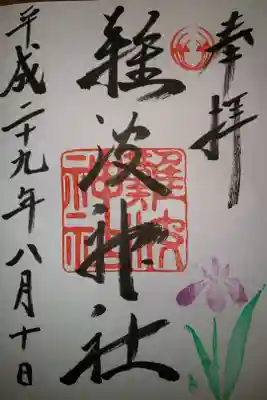 奉拝
難波神社
難波神社
平成二十九年八月十日